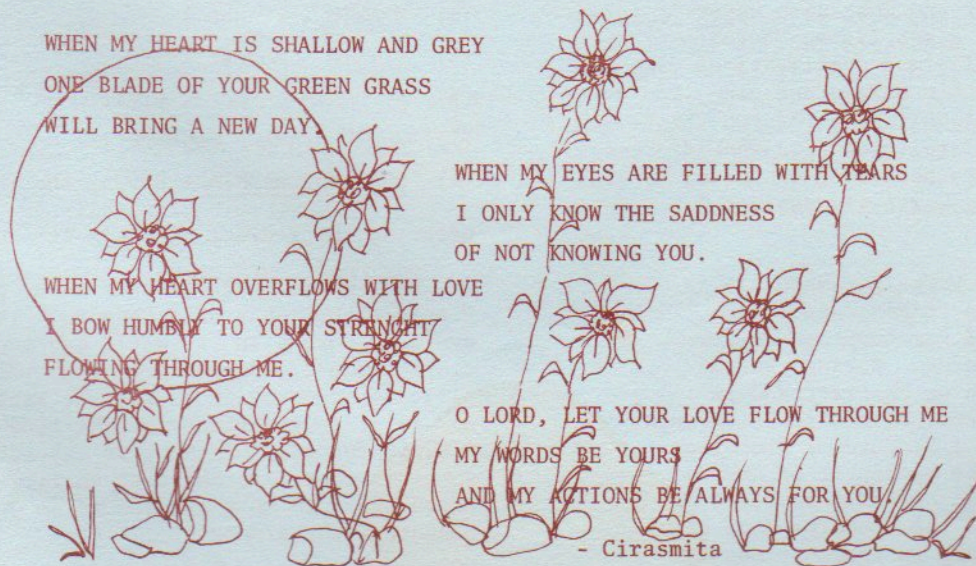 WHEN MY HEART IS SHALLOW AND GREY
ONE BLADE OF YOUR GREEN GRASS
WILL BRING A NEW DAY.
WHEN MY EYES ARE FILLED WITH TEARS
I ONLY KNOW THE SADDNESS
OF NOT KNOWING YOU.
WHEN MY HEART OVERFLOWS WITH LOVE
I BOW HUMBLY TO YOUR STRENGHT
FLOWING THROUGH ME.
O LORD, LET YOUR LOVE FLOW THROUGH ME
MY WORDS BE YOURS
AND MY ACTIONS BE ALWAYS FOR YOU.
- Cirasmita